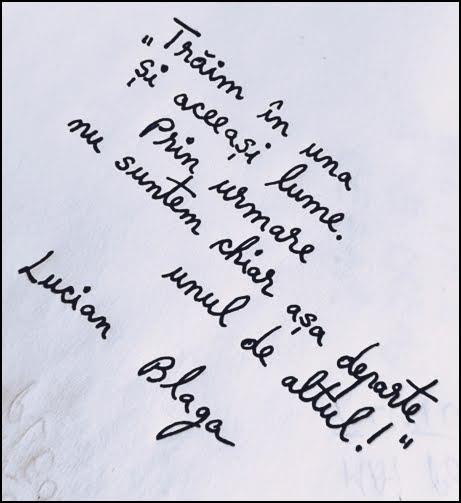 „Trăim în una
și aceeași lume.
Prin urmare
nu suntem chiar așa departe
unul de altul!“
Lucian Blaga